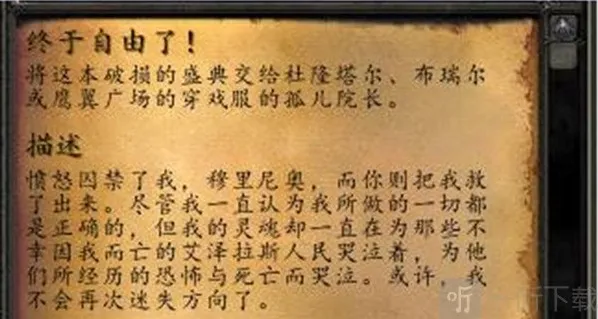 终于自由了！
将这本破损的盛典交给杜隆塔尔、布瑞尔
或鹰翼广场的穿戏服的孤儿院长。
描述
愤怒囚禁了我，穆里尼奥，而你则把我救
了出来。尽管我一直认为我所做的一切都
是正确的，但我的灵魂却一直在为那些不
幸因我而亡的艾泽拉斯人民哭泣着，为他
们所经历的恐怖与死亡而哭泣。或许，我
不会再次迷失方向了。
听下载